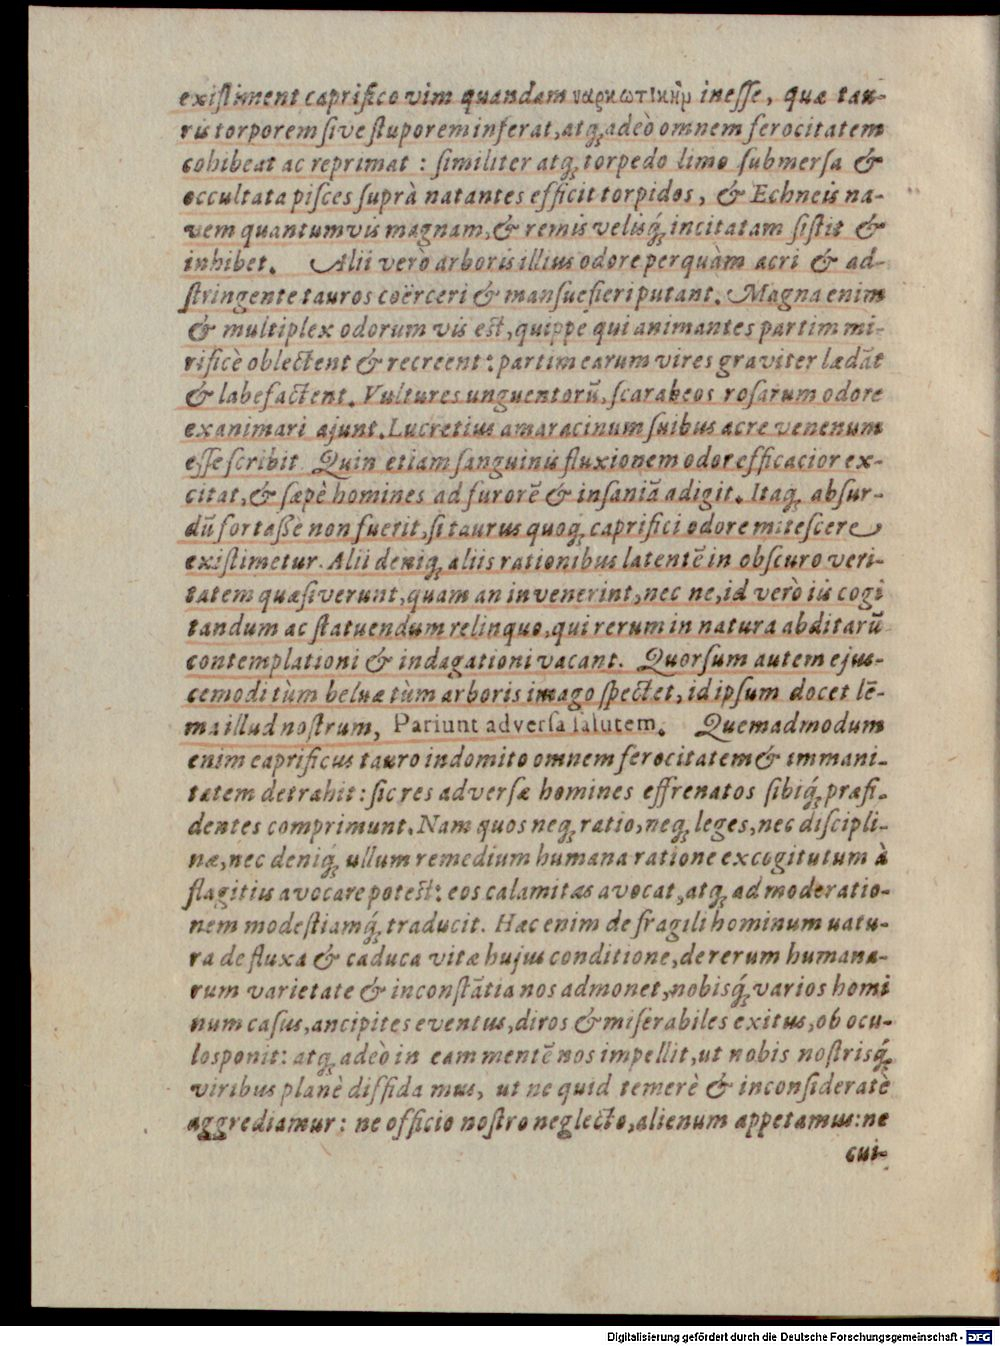 exiſtiment caprifico vim quandam ναρκωτικὴν ineſſe, quæ tau-
ris torporem ſive ſtuporem inferat, atq; adeò omnem ferocitatem
cohibeat ac reprimat : ſimiliter atq; torpedo limo ſubmerſa &
occultata piſces ſuprà natantes efficit torpidos, & Echneis na-
vem quantumvis magnam, & remis velisq́; incitatam ſiſtit &
inhibet. Alii verò arboris illius odore perquàm acri & ad-
ſtringente tauros coërceri & manſuefieri putant. Magna enim
& multiplex odorum vis eſt, quippe qui animantes partim mi-
rificè oblectent & recreent: partim earum vires graviter lædāt
& labefactent. Vultures unguentorū, ſcarabeos roſarum odore
exanimari ajunt. Lucretius amaracinum ſuibus acre venenum
eſſe ſcribit. Quin etiam ſanguinis fluxionem odor efficacior ex-
citat, & ſæpè homines ad furorē & inſaniā adigit. Itaq; abſur-
dū fortaßè non fuerit, ſi taurus quoq; caprifici odore miteſcere
exiſtimetur. Alii deniq; aliis rationibus latentē in obſcuro veri-
tatem quæſiverunt, quam an invenerint, nec ne, id verò iis cogi
tandum ac ſtatuendum relinquo, qui rerum in natura abditarū
contemplationi & indagationi vacant. Quorſum autem ejus-
cemodi tùm beluæ tùm arboris imago ſpectet, id ipſum docet lē-
ma illud noſtrum, Pariunt adverſa ſalutem. Quemadmodum
enim caprificus tauro indomito omnem ferocitatem & immani-
tatem detrahit: ſic res adverſæ homines effrenatos ſibiq́; præfi-
dentes comprimunt. Nam quos neq; ratio, neq; leges, nec diſcipli-
næ, nec deniq́; ullum remedium humana ratione excogitutum à
flagitiis avocare poteſt: eos calamitas avocat, atq; ad moderatio-
nem modeſtiamq́; traducit. Hæc enim de fragili hominum uatu-
ra de fluxa & caduca vitæ hujus conditione, de rerum humana-
rum varietate & inconſtātia nos admonet, nobisq́; varios homi
num caſus, ancipites eventus, diros & miſerabiles exitus, ob ocu-
los ponit: atq; adeò in eam mentē nos impellit, ut nobis noſtrisq́;
viribus planè diffida mus, ut ne quid temerè & inconſideratè
aggrediamur: ne officio noſtro neglecto, alienum appetamus: ne
cui-
Digitalisierung gefördert durch die Deutsche Forschungsgemeinschaft - DFG